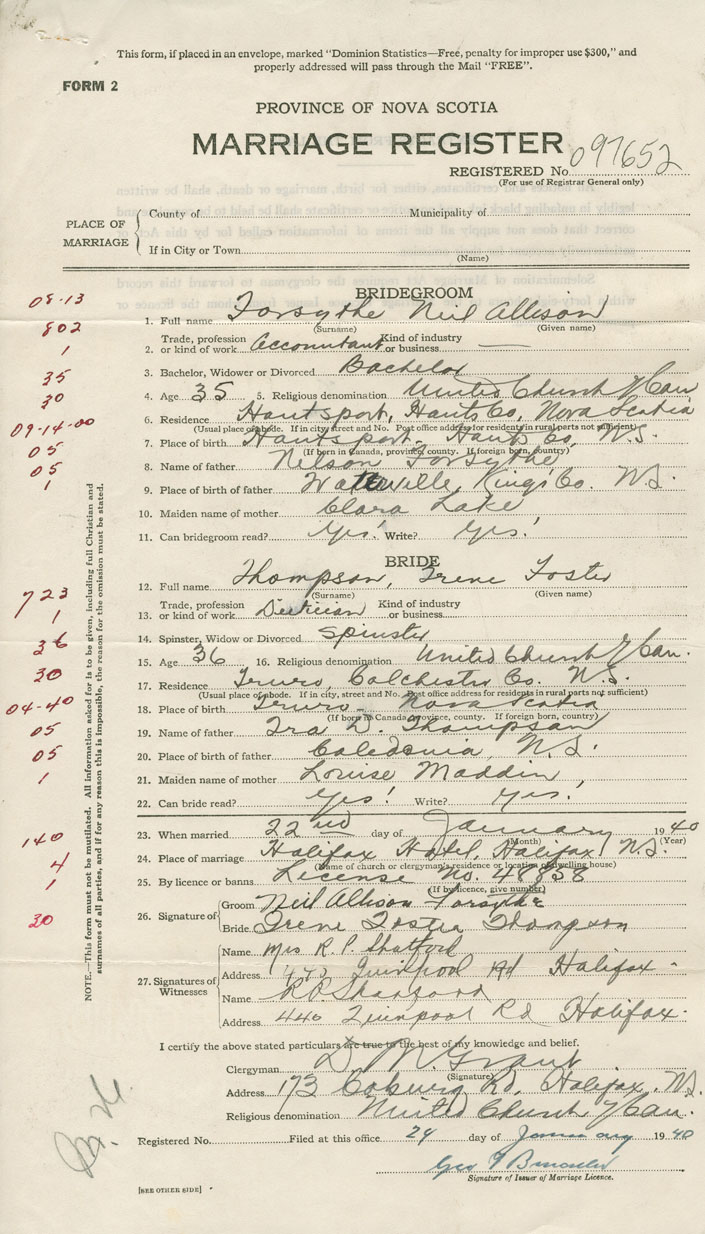 This form, if placed in an envelope, marked "Dominion Statistics—Free, penalty for improper use $300," and
properly addressed will pass through the Mail "FREE".
FORM 2
PROVINCE OF NOVA SCOTIA
MARRIAGE REGISTER
REGISTERED No. 097652
(For use of Registrar General only)
PLACE OF MARRIAGE
County of Municipality of
If in City or Town
(Name)
BRIDEGROOM
08-13
1. Full name Forsythe Neil Allison
(Surname) (Given name)
802
2. Trade, profession or kind of work Accountant Kind of industry or business —
1
3. Bachelor, Widower or Divorced Bachelor
35
4. Age 35 5. Religious denomination United Church of Can
30
6. Residence Hantsport, Hants Co, Nova Scotia
(Usual place of abode. If in city, street and No. Post office address for residents in rural parts not sufficient)
09-14-00
7. Place of birth Hantsport. Hants Co, N.S.
(If born in Canada, province, county. If foreign born, country)
05
8. Name of father Nelson Forsythe
05
9. Place of birth of father Waterville, Kings Co. N.S.
1
10. Maiden name of mother Clara Lake
11. Can bridegroom read? Yes! Write? Yes!
BRIDE
12. Full name Thompson, Irene Foster
(Surname) (Given name)
723
13. Trade, profession or kind of work Dietician Kind of industry or business
1
14. Spinster, Widow or Divorced Spinster
36
15. Age 36 16. Religious denomination United Church of Can.
30
17. Residence Truro, Colchester Co. N.S.
(Usual place of abode. If in city, street and No. Post office address for residents in rural parts not sufficient)
04-40
18. Place of birth Truro - Nova Scotia
(If born in Canada, province, county. If foreign born, country)
05
19. Name of father Ira D. Thompson
05
20. Place of birth of father Caledonia, N.S.
1
21. Maiden name of mother Louise Maddin
22. Can bride read? Yes! Write? Yes!
23. When married 22nd day of January 1940
(Month) (Year)
140
24. Place of marriage Halifax Hotel, Halifax N.S.
(Name of church or clergyman's residence or location of dwelling house)
4
1
25. By licence or banns License No. 48858
(If by licence, give number)
30
26. Signature of
Groom Neil Allison Forsythe
Bride Irene Foster Thompson
27. Signatures of Witnesses
Name Mrs R. P. Shatford
Address Quinpool Rd Halifax -
Name R.P. Shatford
Address 440 Quinpool Rd Halifax.
I certify the above stated particulars are true to the best of my knowledge and belief.
Clergyman D M Grant
(Signature)
Address 173 Coburg Rd, Halifax. N.S.
Religious denomination United Church of Can.
Registered No. Filed at this office 24 day of January 1940
Geo
Signature of Issuer of Marriage Licence.
[SEE OTHER SIDE]
NOTE.—This form must not be mutilated. All information asked for is to be given, including full Christian and
surnames of all parties, and if for any reason this is impossible, the reason for the omission must be stated.